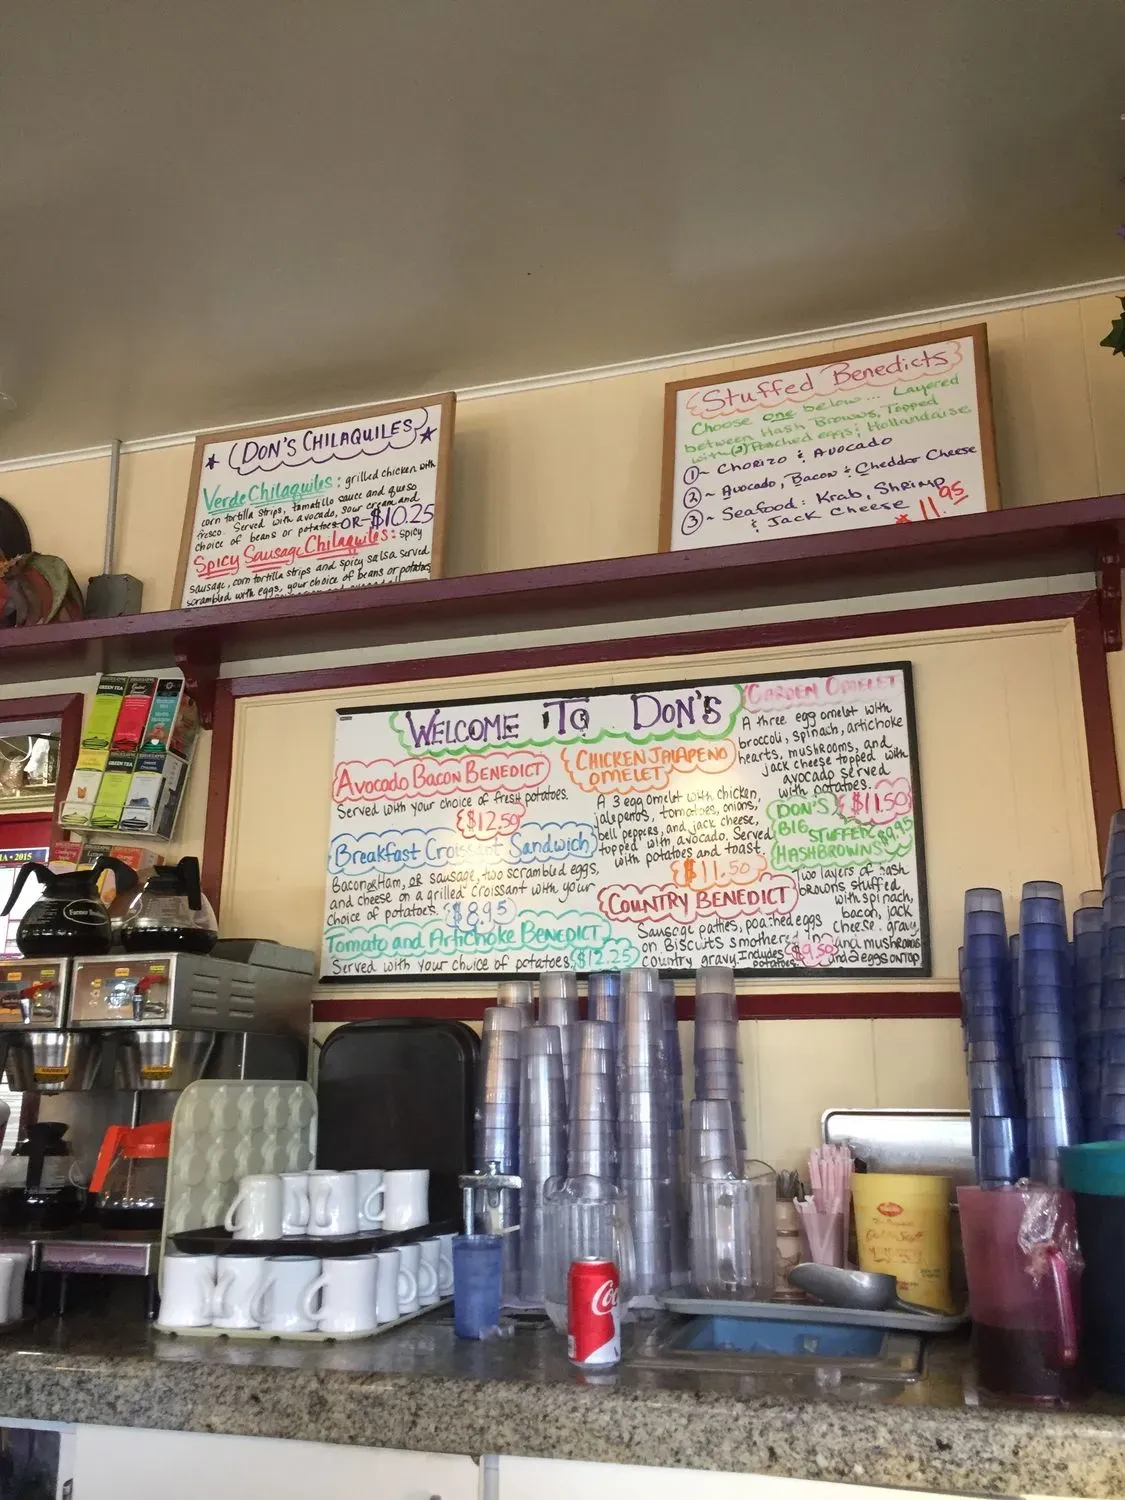 DON'S CHILAQUILES
Verde Chilaquiles: grilled chicken with
corn tortilla strips, tomatillo sauce and queso
fresco. Served with avocado, sour cream and
choice of beans or potatoes -OR- $10.25
Spicy Sausage Chilaquiles: spicy
sausage, corn tortilla strips and spicy salsa served
scrambled with eggs, your choice of beans or potatoes
Stuffed Benedicts
Choose one below... Layered
between Hash Browns, Topped
with (2) Poached eggs & Hollandaise
① ~ Chorizo & Avocado
② ~ Avocado, Bacon & Cheddar Cheese
③ ~ Seafood: Krab, Shrimp
& Jack Cheese
$11.95
WELCOME TO DON'S
Avocado Bacon BENEDICT
Served with your choice of fresh potatoes.
$12.50
Breakfast Croissant Sandwich
Bacon or Ham, OR sausage, two scrambled eggs,
and cheese on a grilled croissant with your
choice of potatoes. $8.95
Tomato and Artichoke BENEDICT
Served with your choice of potatoes. $12.25
CHICKEN JALAPENO
OMELET
A 3 egg omelet with chicken,
jalapeños, tomatoes, onions,
bell peppers, and jack cheese,
topped with avocado. Served
with potatoes and toast.
$11.50
COUNTRY BENEDICT
Sausage patties, poached eggs
on Biscuits smothered in
country gravy. Includes
potatoes $9.50
GARDEN OMELET
A three egg omelet with
broccoli, spinach, artichoke
hearts, mushrooms, and
jack cheese topped with
avocado served
with potatoes.
$11.50
DON'S
BIG
STUFFED $9.95
HASHBROWNS
Two layers of hash
browns stuffed
with spinach,
bacon, jack
cheese, gravy
and mushrooms
and 2 eggs on top
GREEN TEA
GREEN TEA
A • 2015
Coca